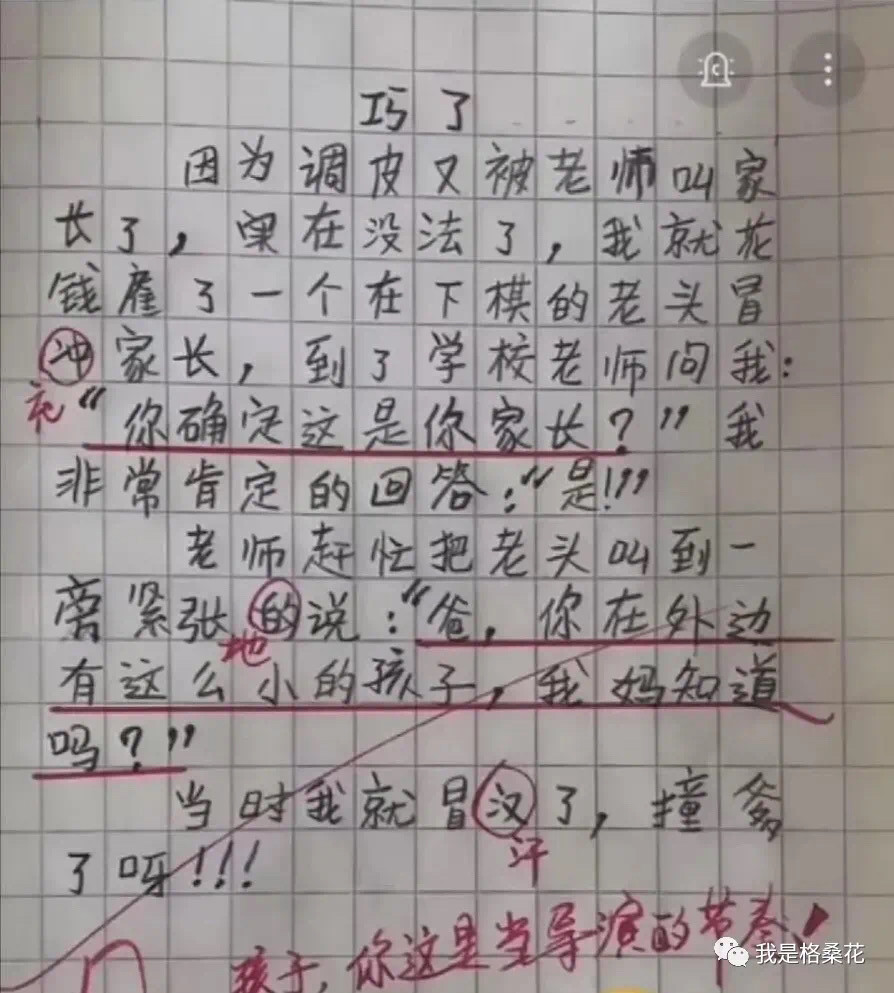 巧了
因为调皮又被老师叫家
长了，实在没法了，我就花
钱雇了一个在下棋的老头冒
冲家长，到了学校老师问我：
充
“你确定这是你家长？”我
非常肯定的回答：“是!”
老师赶忙把老头叫到一
旁紧张的说：“爸，你在外边
地
有这么小的孩子，我妈知道
吗？”
当时我就冒汉了，撞爹
汗
了呀!!!
孩子，你这是当导演的节奏！
我是格桑花